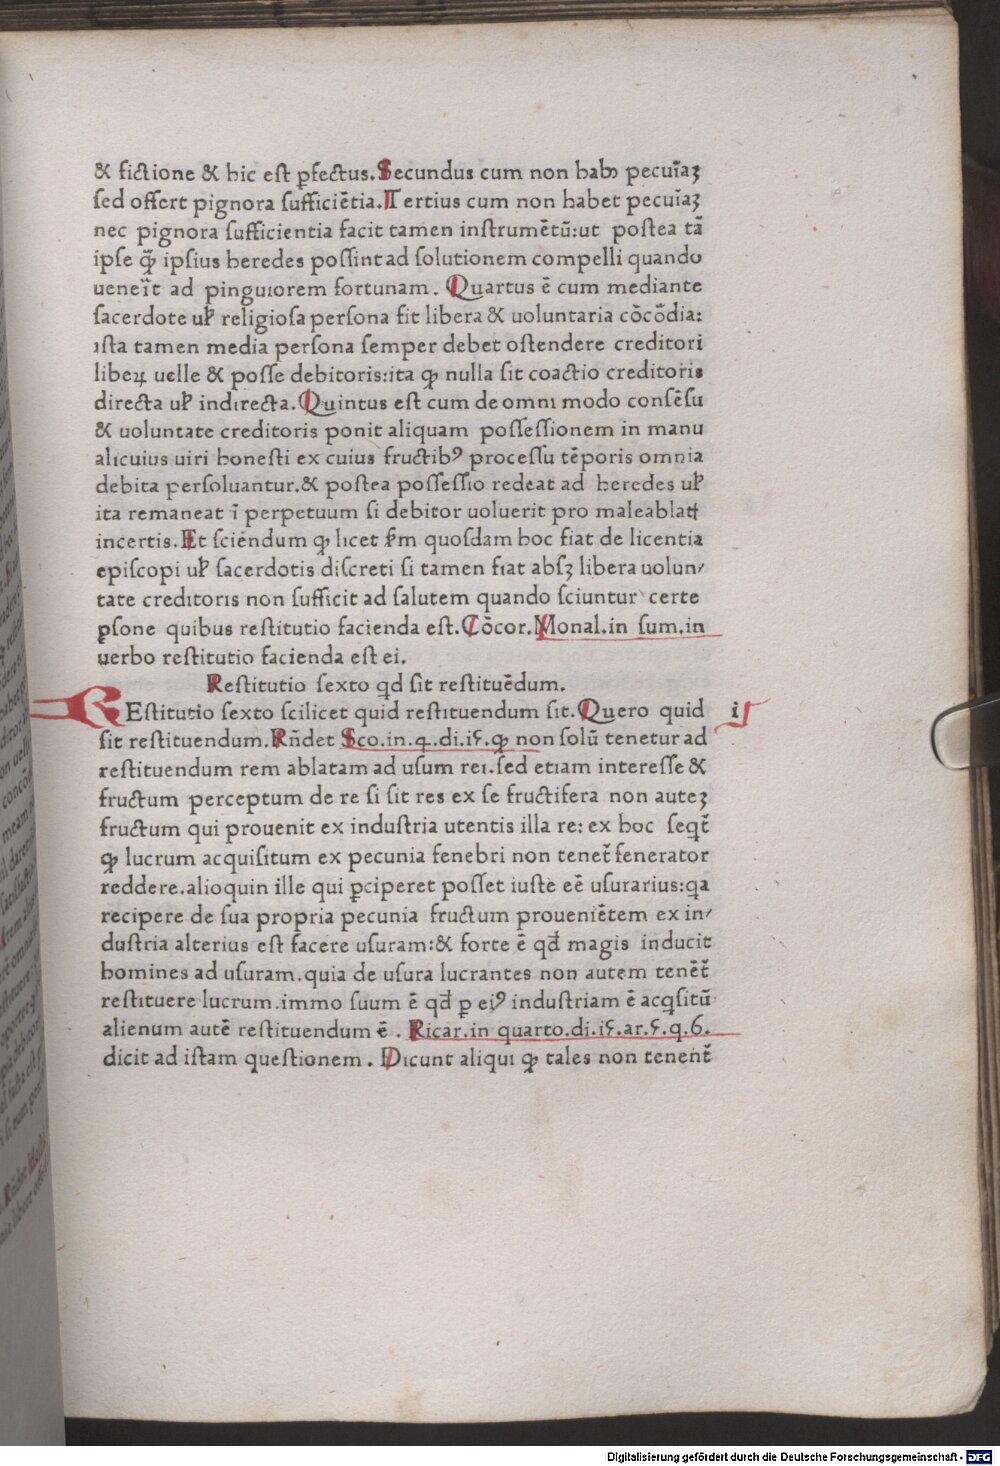 & fictione & hic est ꝑfectus. Secundus cum non habꝫ pecuīaꝫ
sed offert pignora sufficiētia. Tertius cum non habet pecuīaꝫ
nec pignora sufficientia facit tamen instrumētū: ut postea tā
ipse ꝙ̄ ipsius heredes possint ad solutionem compelli quando
ueneīt ad pinguiorem fortunam. Quartus ē cum mediante
sacerdote ul̉ religiosa persona fit libera & uoluntaria cōcōdia:
ista tamen media persona semper debet ostendere creditori
libeꝝ uelle & posse debitoris: ita ꝙ nulla sit coactio creditoris
directa ul̉ indirecta. Quintus est cum de omni modo consēsu
& uoluntate creditoris ponit aliquam possessionem in manu
alicuius uiri honesti ex cuius fructibꝰ processu tēporis omnia
debita persoluantur. & postea possessio redeat ad heredes ul̉
ita remaneat ī perpetuum si debitor uoluerit pro maleablatꝭ
incertis. Et sciendum ꝙ licet ẜm quosdam hoc fiat de licentia
episcopi ul̉ sacerdotis discreti si tamen fiat absꝫ libera uolun/
tate creditoris non sufficit ad salutem quando sciuntur certe
ꝑsone quibus restitutio facienda est. Cōcor. Monal. in sum. in
uerbo restitutio facienda est ei.
Restitutio sexto qd sit restituēdum.
REstitutio sexto scilicet quid restituendum sit. Quero quid
sit restituendum. Rn̄det Sco. in. 4. di. i5. ꝙ non solū tenetur ad
restituendum rem ablatam ad usum rei. sed etiam interesse &
fructum perceptum de re si sit res ex se fructifera non auteꝫ
fructum qui prouenit ex industria utentis illa re: ex hoc seqt̄
ꝙ lucrum acquisitum ex pecunia fenebri non tenet̄ fenerator
reddere. alioquin ille qui ꝑciperet posset iuste eē usurarius: qa
recipere de sua propria pecunia fructum proueniētem ex in/
dustria alterius est facere usuram: & forte ē qd̄ magis inducit
homines ad usuram. quia de usura lucrantes non autem tenēt̄
restituere lucrum. immo suum ē qd̄ ꝑ eiꝰ industriam ē acqsitū
alienum autē restituendum ē. Ricar. in quarto. di. i5. ar. 5. q. 6.
dicit ad istam questionem. Dicunt aliqui ꝙ tales non tenent̄
i
Digitalisierung gefördert durch die Deutsche Forschungsgemeinschaft - DFG